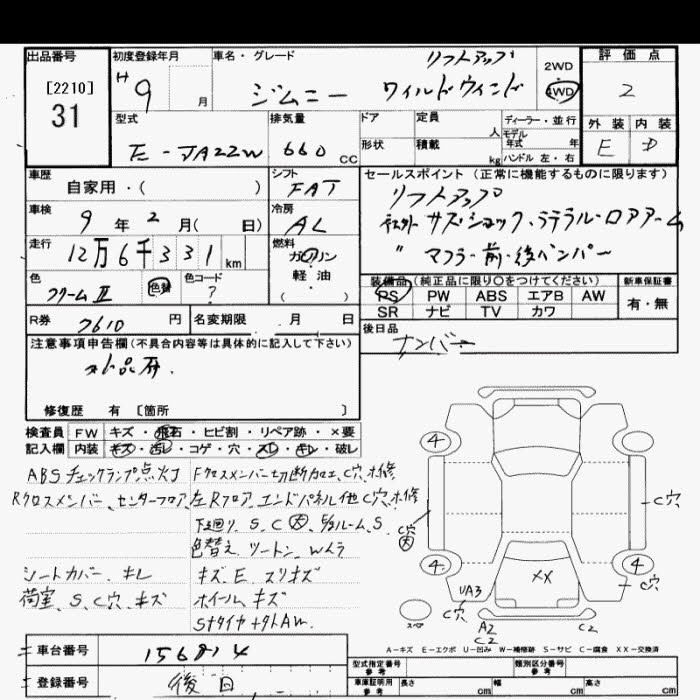 出品番号 初度登録年月 車名・グレード リフトアップ 2WD 評価点
[2210] H 9 月 ジムニー ワイルドウィンド 4WD 2
31
型式 排気量 ドア 定員 人 ディーラー・並行 外装 内装
E-JA22W 660 CC 形状 積載 kg モデル年式 年 E D
ハンドル 左・右
車歴 シフト セールスポイント (正常に機能するものに限ります)
自家用・( ) FAT リフトアップ
車検 冷房 社外 サス・ショック、ラテラル・ロアアーム
9 年 2 月( 日) AC 〃 マフラー 前・後バンパー
走行 燃料
12万6千331 km ガソリン
色 色替 色コード 軽油 装備品(純正品に限り○をつけてください) 新車保証書
クリームⅡ ? ( ) PS PW ABS エアB AW 有・無
SR ナビ TV カワ
R券 7610 円 名変期限 月 日 後日品
ナンバー
注意事項申告欄(不具合内容等は具体的に記入して下さい)
修復歴 有 [箇所 ]
検査員 FW キズ・飛石・ヒビ割・リペア跡・×要
記入欄 内装 キズ・汚レ・コゲ・穴・スレ・キレ・破レ
ABSチェックランプ点灯 Fクロスメンバー切断加工、C穴、補修
Rクロスメンバー、センターフロア、左Rフロア、エンドパネル他C穴、補修
下廻り、S、C大、E/ルーム、S
色替え、ツートン、Wムラ
シートカバー、キレ キズ、E、スリキズ
荷室、S、C穴、キズ ホイール、キズ
4 4 4 4
C穴 大 C穴 C穴 C穴
XX UA3 A2 C2 C2 スペア
A-キズ E-エクボ U-凹み W-補修跡 S-サビ C-腐食 XX-交換済
車台番号 156814 型式指定番号 参考 類別区分番号 参考
登録番号 後日 車庫証明用 参考 長さ cm 幅 cm 高さ cm